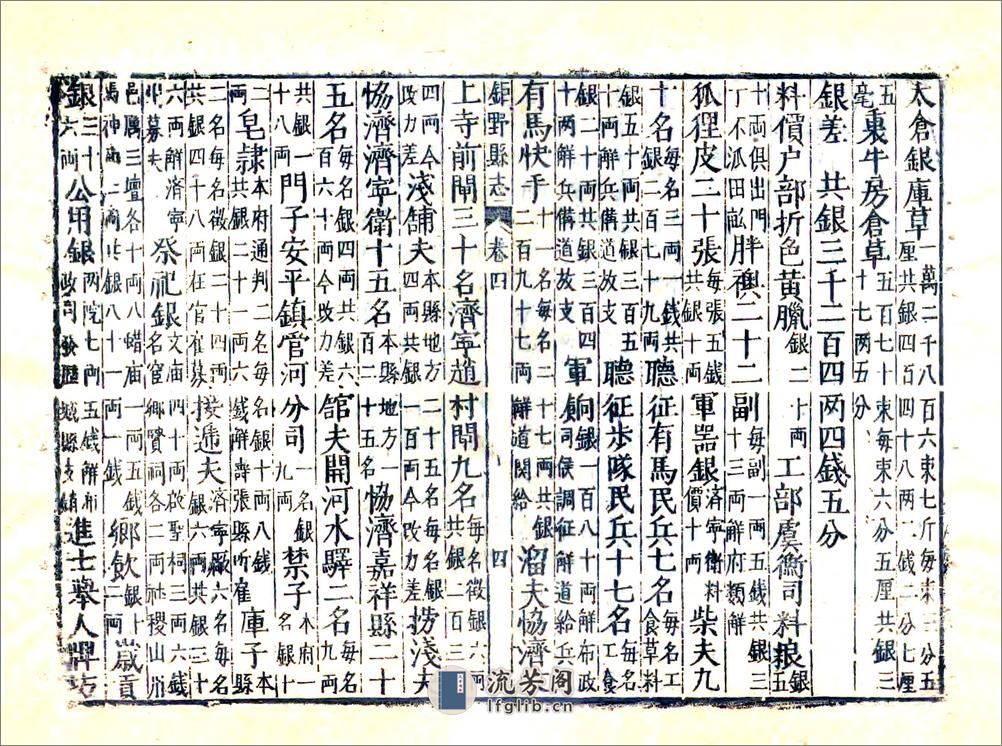 太倉銀庫草一萬二千八百六束七斤每束三分五厘共銀四百四十八兩一錢二分七厘
毫裏牛房倉草五百七十束每束六分五厘共銀三十七兩五分
銀差 共銀三千二百四两四錢五分
料價户部折色黃臘銀二十兩工部虞衡司料銀五
十兩俱出門丁不瓜田畝胖襖二十二副每副一兩五錢共銀三十三兩解府類解
狐狸皮二十張每張五錢共銀十兩軍器銀濟寧衛料價十兩柴夫九
十名每名三兩一錢共銀二百七十九兩聽征有馬民兵七名每名工食草料
銀五十兩共銀三百五十兩解兵備道放支聽征步隊民兵十七名每名工食
銀二十兩共銀三百四十兩解兵備道放支軍餉銀一百八十兩解布政司候調征解道給兵
有馬快手十一名每名二十七兩共銀二百九十七兩解道関給溜夫協濟
鉅野縣志 卷四 四
上寺前閘三十名濟寧趙村閘九名每名徵銀共銀二百三十
四兩今改力差淺舖夫本縣地方二十五名每名銀四兩共銀一百兩今改力差撈淺夫
協濟濟寧衛十五名本縣地方一百二十五名協濟嘉祥縣二十
五名每名銀四兩共銀六百六十兩今改力差舘夫開河水驛二名每名九兩
共銀一十八兩門子安平鎮管河分司一名銀九兩禁子本府一名銀十
二兩本府通判二名每名銀十兩八錢
兩皂隷共銀二十一兩六錢解壽張縣所雇庫子本縣
二名每名徵銀二十四兩共銀四十八兩在官雇募接逓夫濟寧廠六名共銀三十
六兩解濟寧州募夫祭祀銀文庙四十兩啟聖祠三兩六錢名宦鄉賢祠各二兩社稷山川
邑厲三壇各十兩八蜡庙一兩五錢馬神庙二兩共銀八十一兩一錢鄉飲銀十二兩歲貢
銀三十六兩公用銀兩院七兩五錢解布政司進士舉人牌坊
流芳阁
lfglib.cn